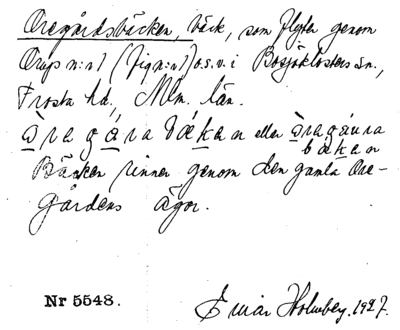 Oregårdsbäcken, bäck, som flyter genom
Orups n:r 1 (Fig n:r 1) o.s.v. i Bosjöklosters sn.,
Frosta hd., Mlm. län.
eller
Bäcken rinner genom den gamla Ore-
gårdens ägor.
Nr 5548.
Einar Holmberg. 1927.